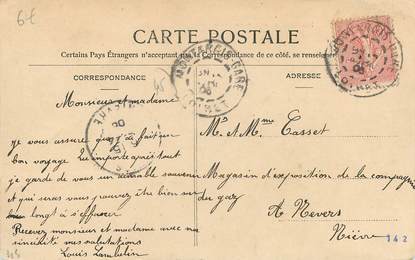 6€
CARTE POSTALE
Certains Pays Étrangers n'acceptant pas la Correspondance de ce côté, se renseigner
CORRESPONDANCE
ADRESSE
MONTARGIS GARE
LOIRET
Monsieur et madame
je vous assure que j'ai fait un
bon voyage peu importe après tout
je garde de vous un aimable souvenir
et qui sera vous pouvez être bien sur
long à s'effacer
Recevez monsieur et madame avec ma
sincérité mes salutations
Louis Lambelin
Mr et Mme Tasset
Magasin d'exposition de la compagnie
du gaz
A Nevers
Nièvre
142